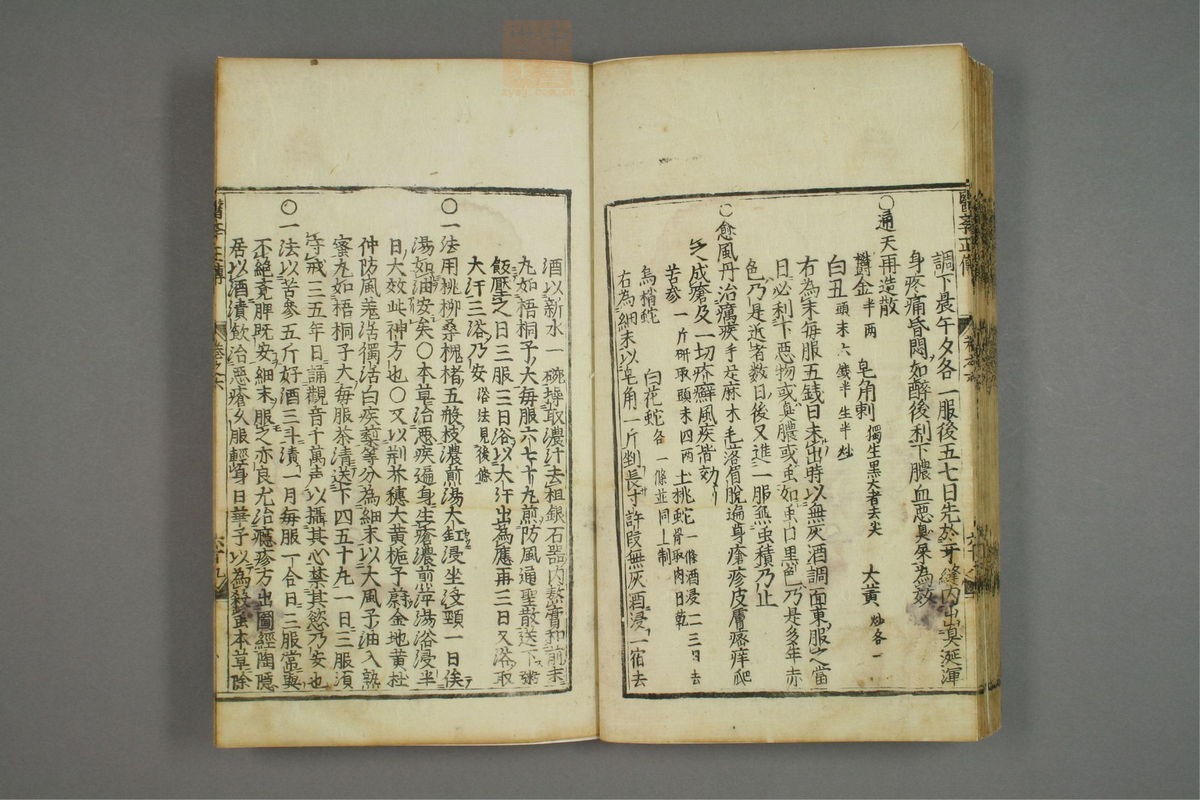 調下辰午夕各一服後五七日先於牙縫內出臭涎渾
身疼痛昏悶如醉後利下膿血惡臭屎為效
○通天再造散
鬱金半兩 皂角刺獨生黑大者去尖 大黃炒各一
白丑頭末六錢半生半炒
右為末每服五錢日未出時以無灰酒調面東服之當
日必利下惡物或臭膿或虫如虫口黑色乃是多年赤
色乃是近者数日後又進一服無虫積乃止
○愈風丹治癘疾手足麻木毛落眉脫遍身瘡疹皮膚瘙痒爬
之成瘡及一切疥癬風疾皆効
苦參一斤研取頭末四兩 土桃蛇一條酒浸二三日去骨取肉日乾
烏梢蛇 白花蛇各一條並同上制
右為細末以皂角一斤剉長寸許段無灰酒浸一宿去
酒以新水一碗挼取濃汁去柤銀石器內熬膏和前末
丸如梧桐子大每服六七十丸煎防風通聖散送下粥
飯壓之日三服三日浴以大汗出為應再三日又浴取
大汗三浴乃安 浴法見後條
○一法用桃柳桑槐楮五般枝濃煎湯大缸浸坐沒頸一日俟
湯如油安矣○本草治惡疾遍身生瘡濃煎萍湯浴浸半
日大效此神方也○又以荊芥穗大黃梔子蔚金地黃杜
仲防風羌活獨活白疾藜等分為細末以大風子油入熟
蜜丸如梧桐子大每服茶清送下四五十丸一日三服須
守戒三五年日誦觀音千萬声以攝其心禁其慾乃安也
○一法以苦參五斤好酒三斗漬一月每服一合日三服常要
不絕竟脾既安細末服之亦良尤治癮疹方出圖經陶隱
居以酒漬飲治惡瘡久服輕身日華子以為殺虫本草除
醫李正傳 卷之六 六十九